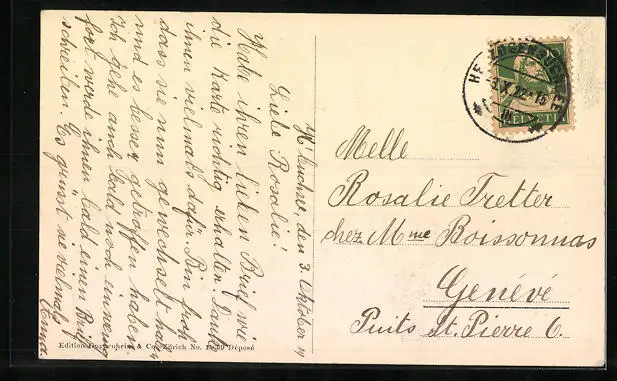 H'buchsee, den 3. Oktober
Liebe Rosalie!
Habe ihren lieben Brief wie
die Karte richtig erhalten. Danke
ihnen vielmals dafür. Bin froh
dass sie nun gewechselt haben
und es besser getroffen haben.
Ich gehe auch bald noch
fort werde ihnen bald einen Brief
schreiben. Es grüsst sie vielmals
Emma
Melle
Rosalie Tretter
chez Mme Boissonnas
Genévé
Puits St. Pierre 6.
HERZOGENBUCHSEE
3.X.22-15
HELVETIA
Edition Guggenheim & Co., Zürich No. Déposé